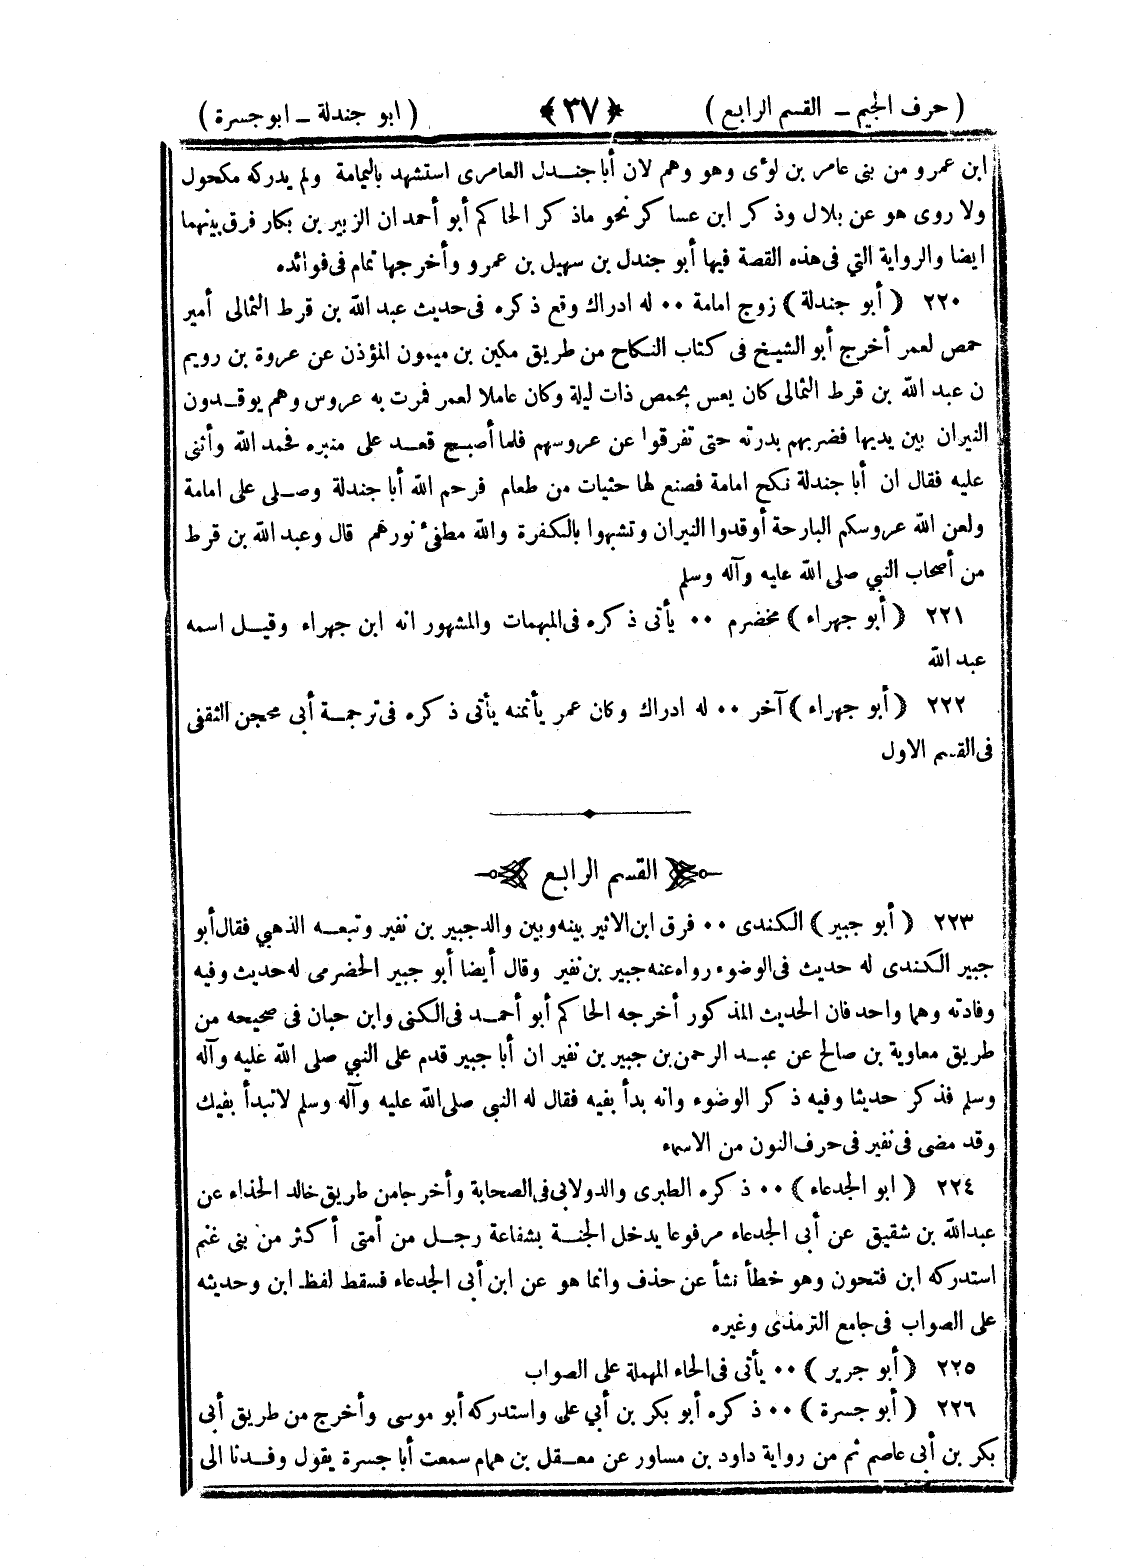 ( حرف الجيم – القسم الرابع ) ﴿ ٣٧ ﴾ ( ابو جندلة – ابو جسرة )
ابن عمرو من بنى عامر بن لوءى وهو وهم لان أبا جندل العامرى استشهد باليمامة ولم يدركه مكحول
ولا روى هو عن بلال وذكر ابن عساكر نحو ماذكر الحاكم أبو أحمد ان الزبير بن بكار فرق بينهما
ايضا والرواية التي فى هذه القصة فيها أبو جندل بن سهيل بن عمرو وأخرجها تمام فى فوائده
٢٢٠ ( أبو جندلة ) زوج امامة ٠٠ له ادراك وقع ذكره فى حديث عبد الله بن قرط الثمالى أمير
حمص لعمر أخرج أبو الشيخ فى كتاب النكاح من طريق مكين بن ميمون المؤذن عن عروة بن رويم
ن عبد الله بن قرط الثمالى كان يعس بحمص ذات ليلة وكان عاملا لعمر فمرت به عروس وهم يوقدون
النيران بين يديها فضربهم بدرته حتى تفرقوا عن عروسهم فلما أصبح قعد على منبره فحمد الله وأثنى
عليه فقال ان أبا جندلة نكح امامة فصنع لها حثيات من طعام فرحم الله أبا جندلة وصلى على امامة
ولعن الله عروسكم البارحة أوقدوا النيران وتشبهوا بالكفرة والله مطفئ نورهم قال وعبد الله بن قرط
من أصحاب النبي صلى الله عليه وآله وسلم
٢٢١ ( أبو جهراء ) مخضرم ٠٠ يأتى ذكره فى المبهمات والمشهور انه ابن جهراء وقيل اسمه
عبد الله
٢٢٢ ( أبو جهراء ) آخر ٠٠ له ادراك وكان عمر يأتمنه يأتى ذكره فى ترجمة أبى محجن الثقفى
فى القسم الاول
القسم الرابع
٢٢٣ ( أبو جبير ) الكندى ٠٠ فرق ابن الاثير بينه وبين والد جبير بن نفير وتبعه الذهبي فقال أبو
جبير الكندى له حديث فى الوضوء رواه عنه جبير بن نفير وقال أيضا أبو جبير الحضرمى له حديث وفيه
وفادته وهما واحد فان الحديث المذكور أخرجه الحاكم أبو أحمد فى الكنى وابن حبان فى صحيحه من
طريق معاوية بن صالح عن عبد الرحمن بن جبير بن نفير ان أبا جبير قدم على النبي صلى الله عليه وآله
وسلم فذكر حديثا وفيه ذكر الوضوء وانه بدأ بفيه فقال له النبى صلى الله عليه وآله وسلم لاتبدأ بفيك
وقد مضى فى نفير فى حرف النون من الاسماء
٢٢٤ ( ابو الجدعاء ) ٠٠ ذكره الطبرى والدولابي فى الصحابة وأخرجا من طريق خالد الحذاء عن
عبدالله بن شقيق عن أبى الجدعاء مرفوعا يدخل الجنة بشفاعة رجل من أمتى أكثر من بنى غنم
استدركه ابن فتحون وهو خطأ نشأ عن حذف وانما هو عن ابن أبى الجدعاء فسقط لفظ ابن وحديثه
على الصواب فى جامع الترمذى وغيره
٢٢٥ ( أبو جرير ) ٠٠ يأتى فى الحاء المهملة على الصواب
٢٢٦ ( أبو جسرة ) ٠٠ ذكره أبو بكر بن أبي على واستدركه أبو موسى وأخرج من طريق أبى
بكر بن أبى عاصم ثم من رواية داود بن مساور عن معقل بن همام سمعت أبا جسرة يقول وفدنا الى